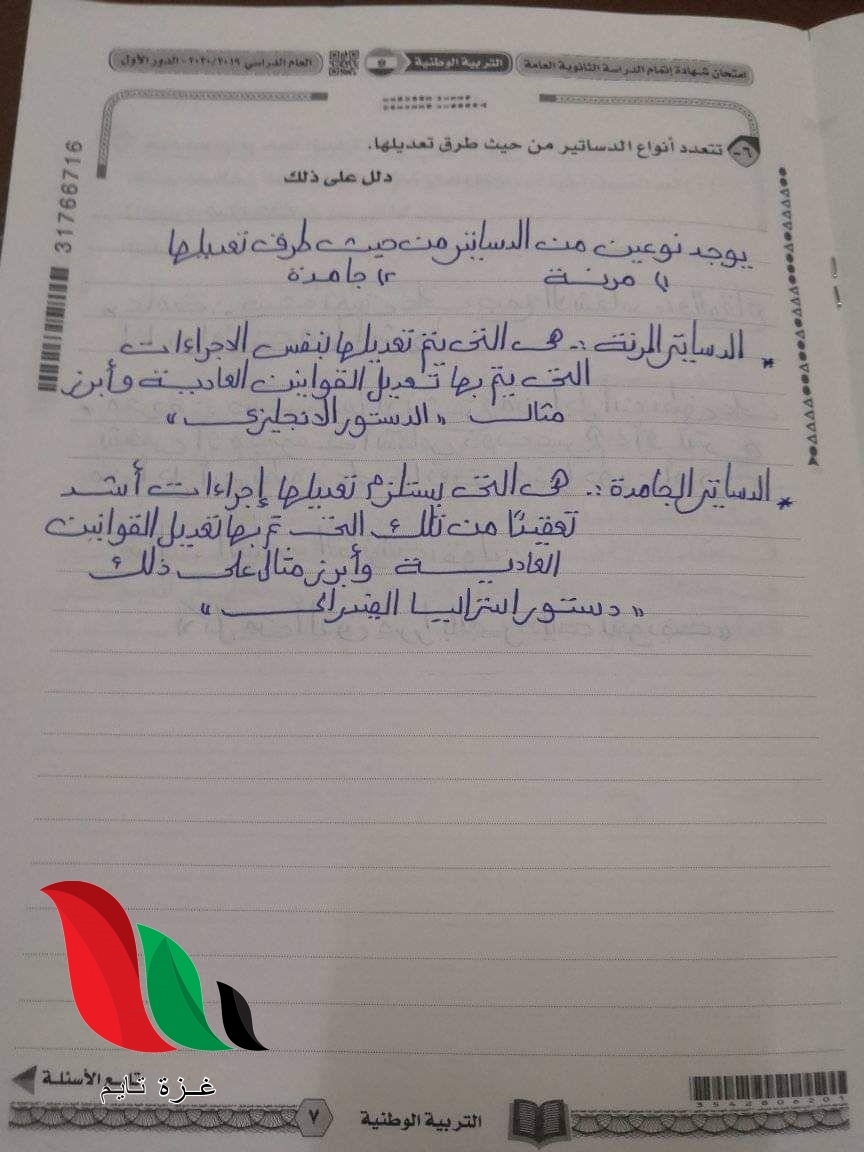 امتحان شهادة إتمام الدراسة الثانوية العامة
التربية الوطنية
العام الدراسي ٢٠٢٠/٢٠١٩ - الدور الأول
31766716
٦- تتعدد أنواع الدساتير من حيث طرق تعديلها.
دلل على ذلك
يوجد نوعين من الدساتير من حيث طرق تعديلها
١) مرنة ٢) جامدة
* الدساتير المرنة :. هى التى يتم تعديلها بنفس الاجراءات
التى يتم بها تعديل القوانين العادية وأبرز
مثال "الدستور الانجليزى"
* الدساتير الجامدة :. هى التى يستلزم تعديلها إجراءات أشد
تعقيدًا من تلك التى تم بها تعديل القوانين
العادية وأبرز مثال على ذلك
"دستور استراليا الفيدرالى"
غزة تايم
تابع الأسئلة
3542806201
التربية الوطنية
٧